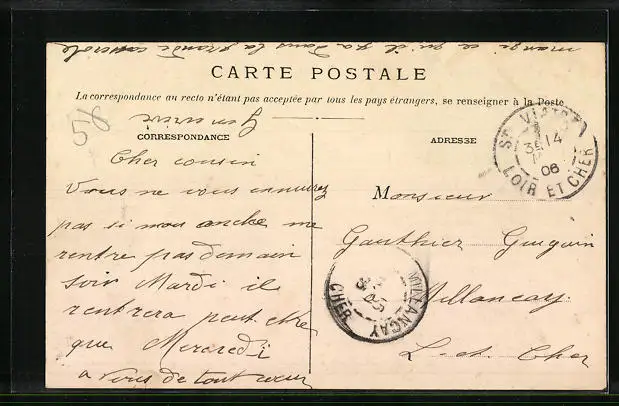 mangé ce qu'il ya dans la grande casserole
CARTE POSTALE
La correspondance au recto n'étant pas acceptée par tous les pays étrangers, se renseigner à la Poste.
58
CORRESPONDANCE
ADRESSE
Cher cousin
Vous ne vous ennuirez
pas si mon oncle ne
rentre pas demain
soir Mardi il
rentrera peut etre
que Mercredi
a vous de tout cœur
Monsieur
Gauthier
Millancay
L. et. Cher
ST VIATRE
14
06
LOIR ET CHER
MILLANÇAY
CHER